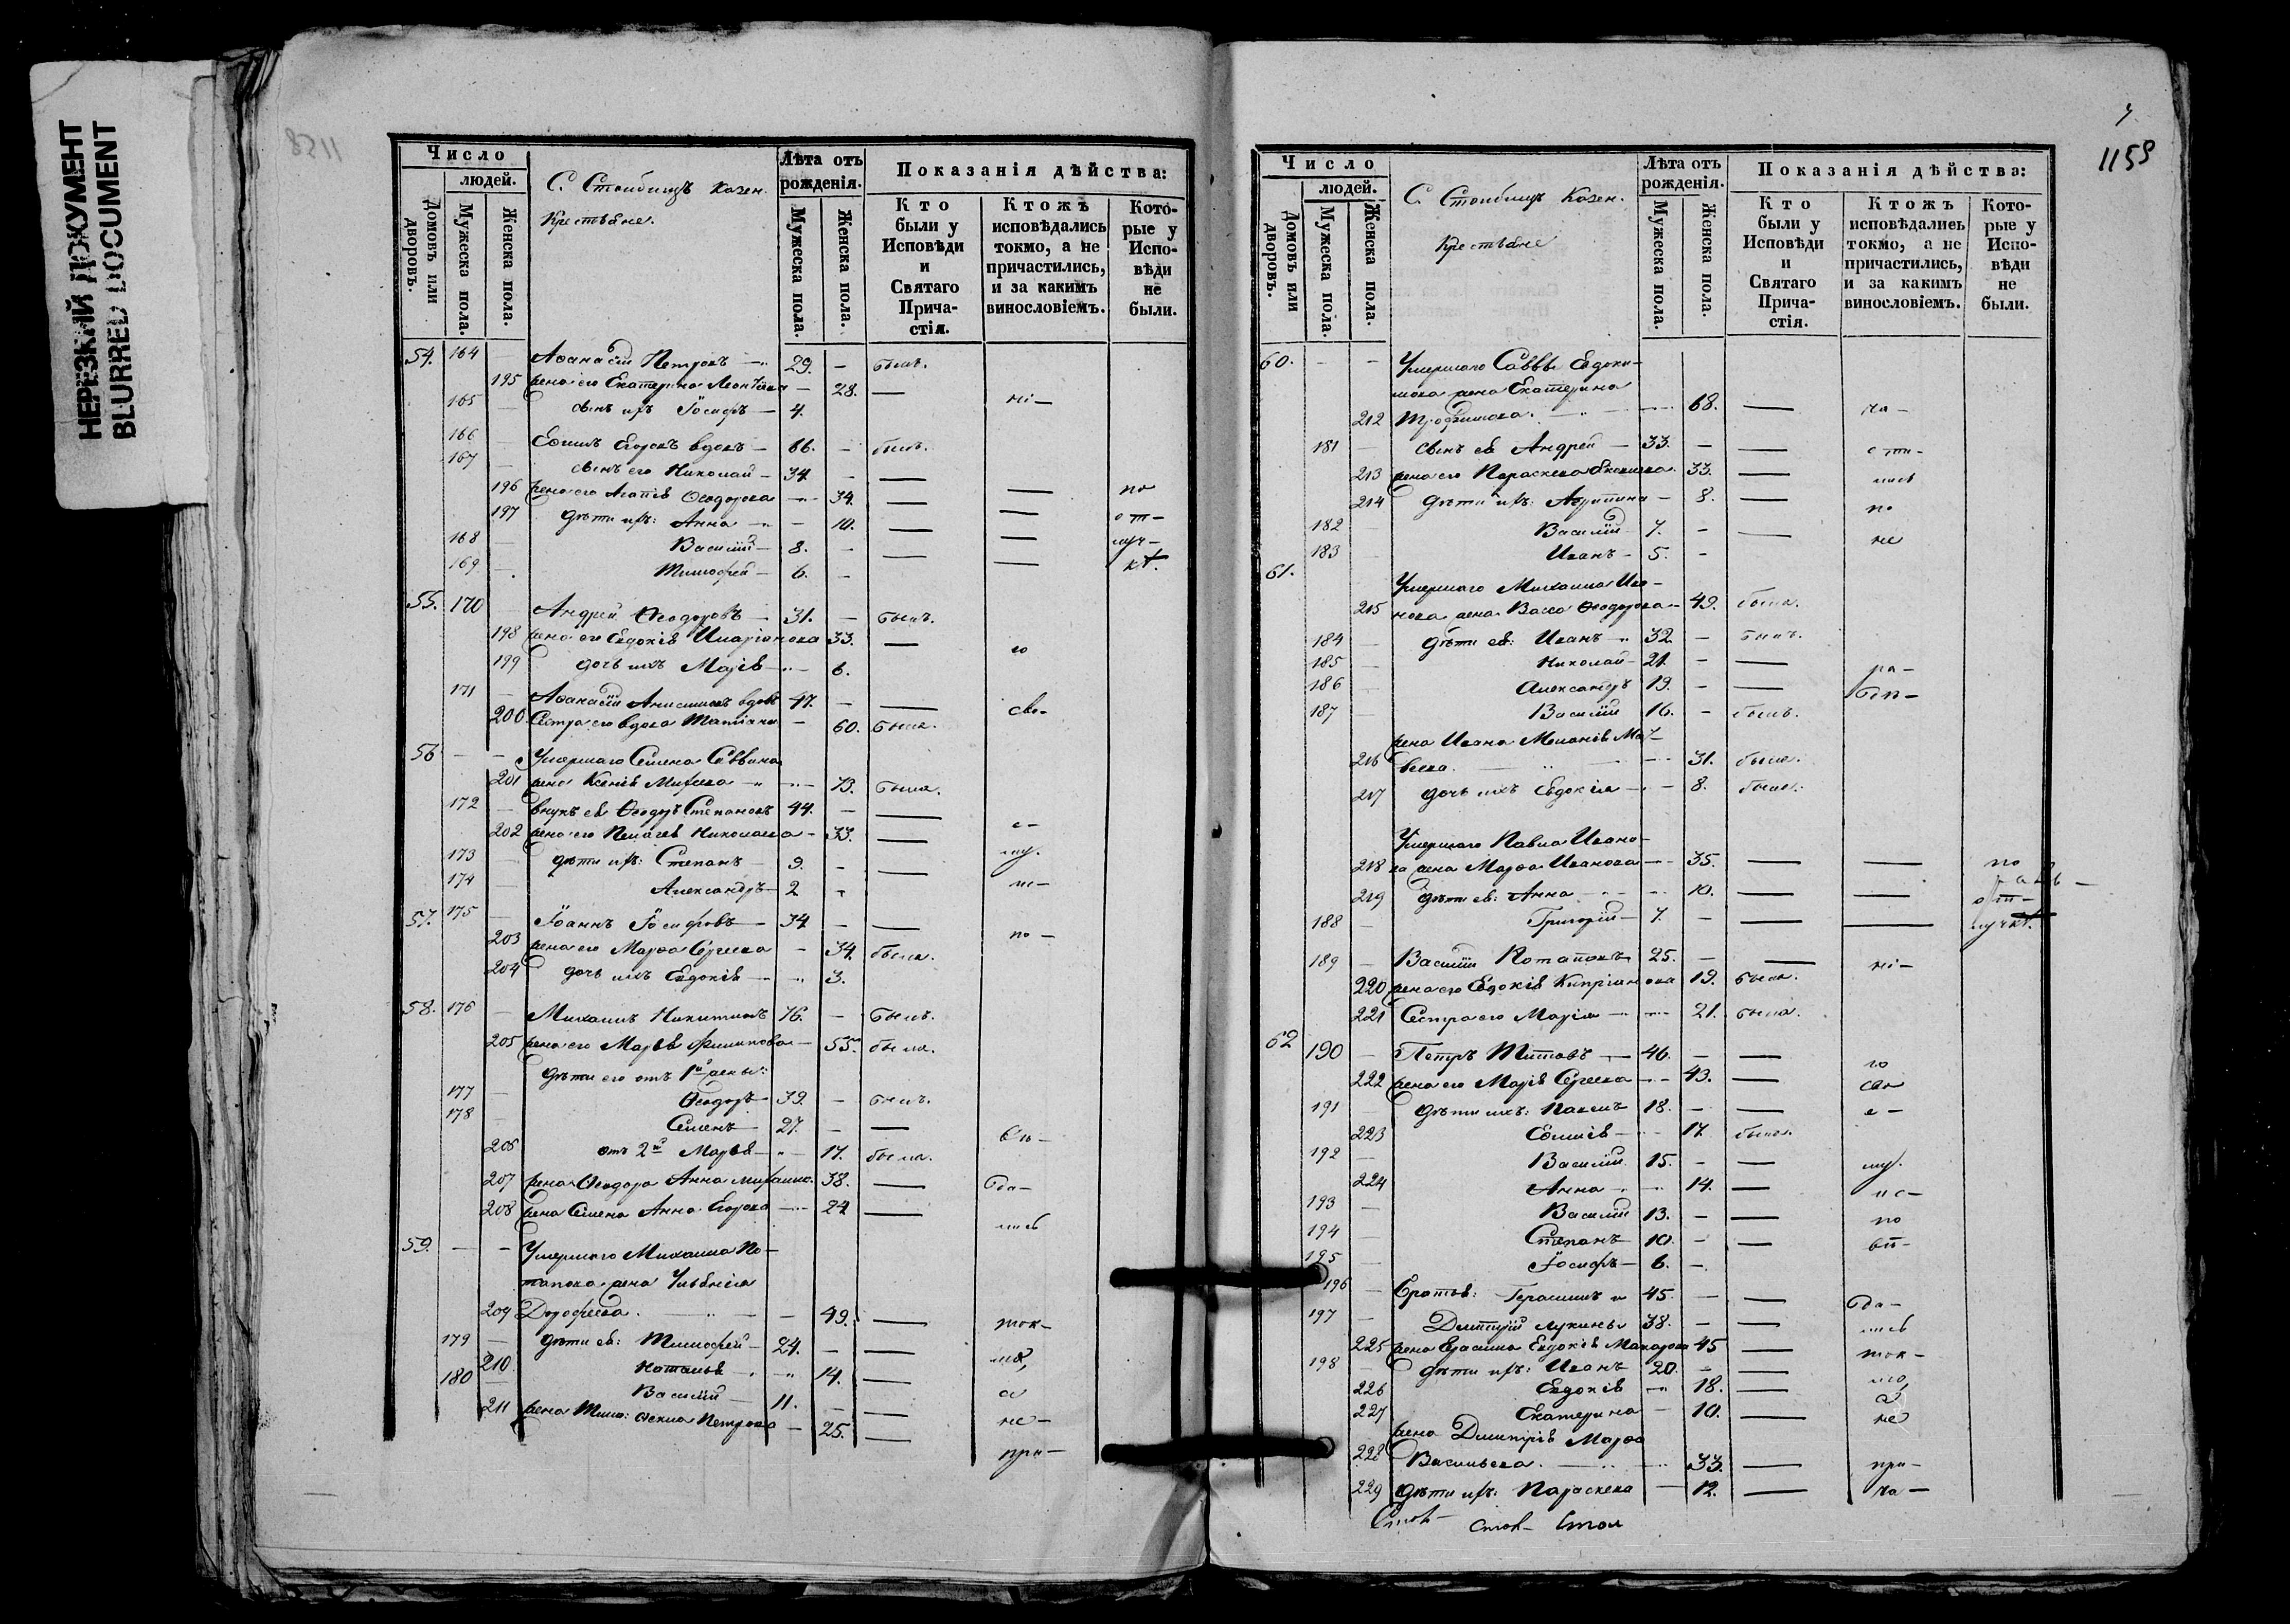 НЕРЕЗКИЙ ДОКУМЕНТ
BLURRED DOCUMENT
1158
Число
людей.
Домовъ или дворовъ.
Мужеска пола.
Женска пола.
С. Стоибищъ Казен.
Крестьяне.
Лѣта отъ рожденія.
Мужеска пола.
Женска пола.
Показанія дѣйства:
Кто были у Исповѣди и Святаго Прича-стія.
Ктожъ исповѣдались токмо, а не причастились, и за какимъ винословіемъ.
Кото-рые у Испо-вѣди не были.
54. 164 — Аѳанасій Петровъ — 29. — былъ.
195 жена его Екатерина Леонтіева — 28. — ні-
165 — сынъ ихъ Іосифъ — 4.
166 — Егоръ вдовъ — 66. — былъ.
167 — сынъ его Николай — 34. — —
196 жена его Агапія Ѳеодорова — 34. — — по
197 дѣти ихъ: Анна — 10. — — от-
168 — Василій — 8. — — — луч-
169 — Тимофей — 6. — — кѣ.
55. 170 — Андрей Ѳеодоровъ — 31. — былъ.
198 жена его Евдокія Иларіонова 33. — го
199 дочь ихъ Марія — 6.
171 — Аѳанасій Анисимовъ вдовъ 47. — — сво-
200 Сестра его вдова Татіана — 60. была.
56 — — Умершаго Семена Саввина
201 жена Ксенія — 73. была.
172 — внукъ ея Ѳеодоръ Степановъ 44. — — е-
202 жена его Пелагея Николаева — 33. — му.
173 — дѣти ихъ: Степанъ — 9. — —
174 — Александръ — 2 — ис-
57. 175 — Іоаннъ Іосифовъ — 34 — — по-
203 жена его Марѳа Сергеева — 34. была.
204 дочь ихъ Евдокія — 3.
58. 176 — Михаилъ Никитинъ 76. — былъ.
205 жена его Марья Филипова — 55. была.
дѣти его отъ 1й жены:
177 — Ѳеодоръ — 39. — былъ.
178 — Семенъ — 27. — — вѣ-
206 отъ 2й Марья — 17. была.
207 жена Ѳеодора Анна Михаило. 38. — да-
208 жена Семена Анна Егорова — 24 — лись
59. — — Умершаго Михаила По-
тапова жена
209 Дорофеева. — 49. — ток-
179 — дѣти ея: Тимофей — 24. — — мо,
210 Наталья — 14. — а
180 — Василій — 11. — — не-
211 жена Тимо: Ѳекла Петрова — 25. — при-
1159
Число
людей.
Домовъ или дворовъ.
Мужеска пола.
Женска пола.
С. Стоибищъ Казен.
Крестьяне
Лѣта отъ рожденія.
Мужеска пола.
Женска пола.
Показанія дѣйства:
Кто были у Исповѣди и Святаго Прича-стія.
Ктожъ исповѣдались токмо, а не причастились, и за какимъ винословіемъ.
Кото-рые у Испо-вѣди не были.
60. — — Умершаго Саввы Евдоки-
мова жена Екатерина
212 Трофимова. — 68. — ча-
181 — сынъ ея Андрей — 33. — — сти-
213 жена его Параскева 33. — лись
214 дѣти ихъ: Агрипина — 8. — по
182 — Василій — 7. — — не
183 — Иванъ — 5. —
61. Умершаго Михаила Ива-
215 нова жена Васса Ѳеодорова — 49. была.
184 — дѣти ея: Иванъ — 32. — былъ.
185 — Николай — 21. — — ра-
186 — Александръ 19. — —
187 — Василій 16. — былъ.
жена Ивана Меланія Мат-
216 веева. — 31. была.
217 дочь ихъ Евдокія — 8. была.
Умершаго Павла Ивано-
218 ва жена Марѳа Иванова — 35. — — по
219 дѣти ея: Анна — 10. — — от-
188 — Григорій — 7. — — — лучкѣ.
189 — Василій Потаповъ 25. — — ні-
220 жена его Евдокія Кипріанова 19. была.
221 Сестра его Марія — 21. была.
62 190 — Петръ Титовъ — 46. — — го
222 жена его Марія Сергеева — 43. — сво
191 — дѣти ихъ: Павелъ 18. — — е-
223 Емилія — 17. была.
192 — Василій 15. — — му.
224 Анна — 14. — ис-
193 — Василій 13. — — по
194 — Степанъ 10. — — вѣ-
195 — Іосифъ — 6. —
196 — братья: Герасимъ 45. — — да-
197 — Дмитрій Лукины 38. — — лись
225 жена Герасима Евдокія Макарова 45 — ток-
198 — дѣти ихъ: Иванъ 20. — — мо,
226 Евдокія — 18. — а
227 Екатерина — 10. — не
жена Дмитрія Марѳа
228 Васильева. — 33. — при-
229 дѣти ихъ: Параскева — 12. — ча-